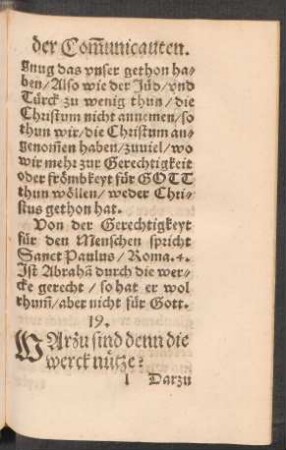 der Com̃unicanten.
gnug das vnser gethon ha-
ben/Also wie der Jüd/vnd
Türck zu wenig thun/die
Christum nicht annemen/so
thun wir/die Christum an-
genom̃en haben/zuuiel/wo
wir mehr zur Gerechtigkeit
oder frömbkeyt für GOTT
thun wöllen/weder Chri-
stus gethon hat.
Von der Gerechtigkeyt
für den Menschen spricht
Sanct Paulus/Roma.4.
Ist Abrahã durch die wer-
cke gerecht/so hat er wol
thum̃/aber nicht für Gott.
19.
WArzu sind denn die
werck nütze?
l Darzu